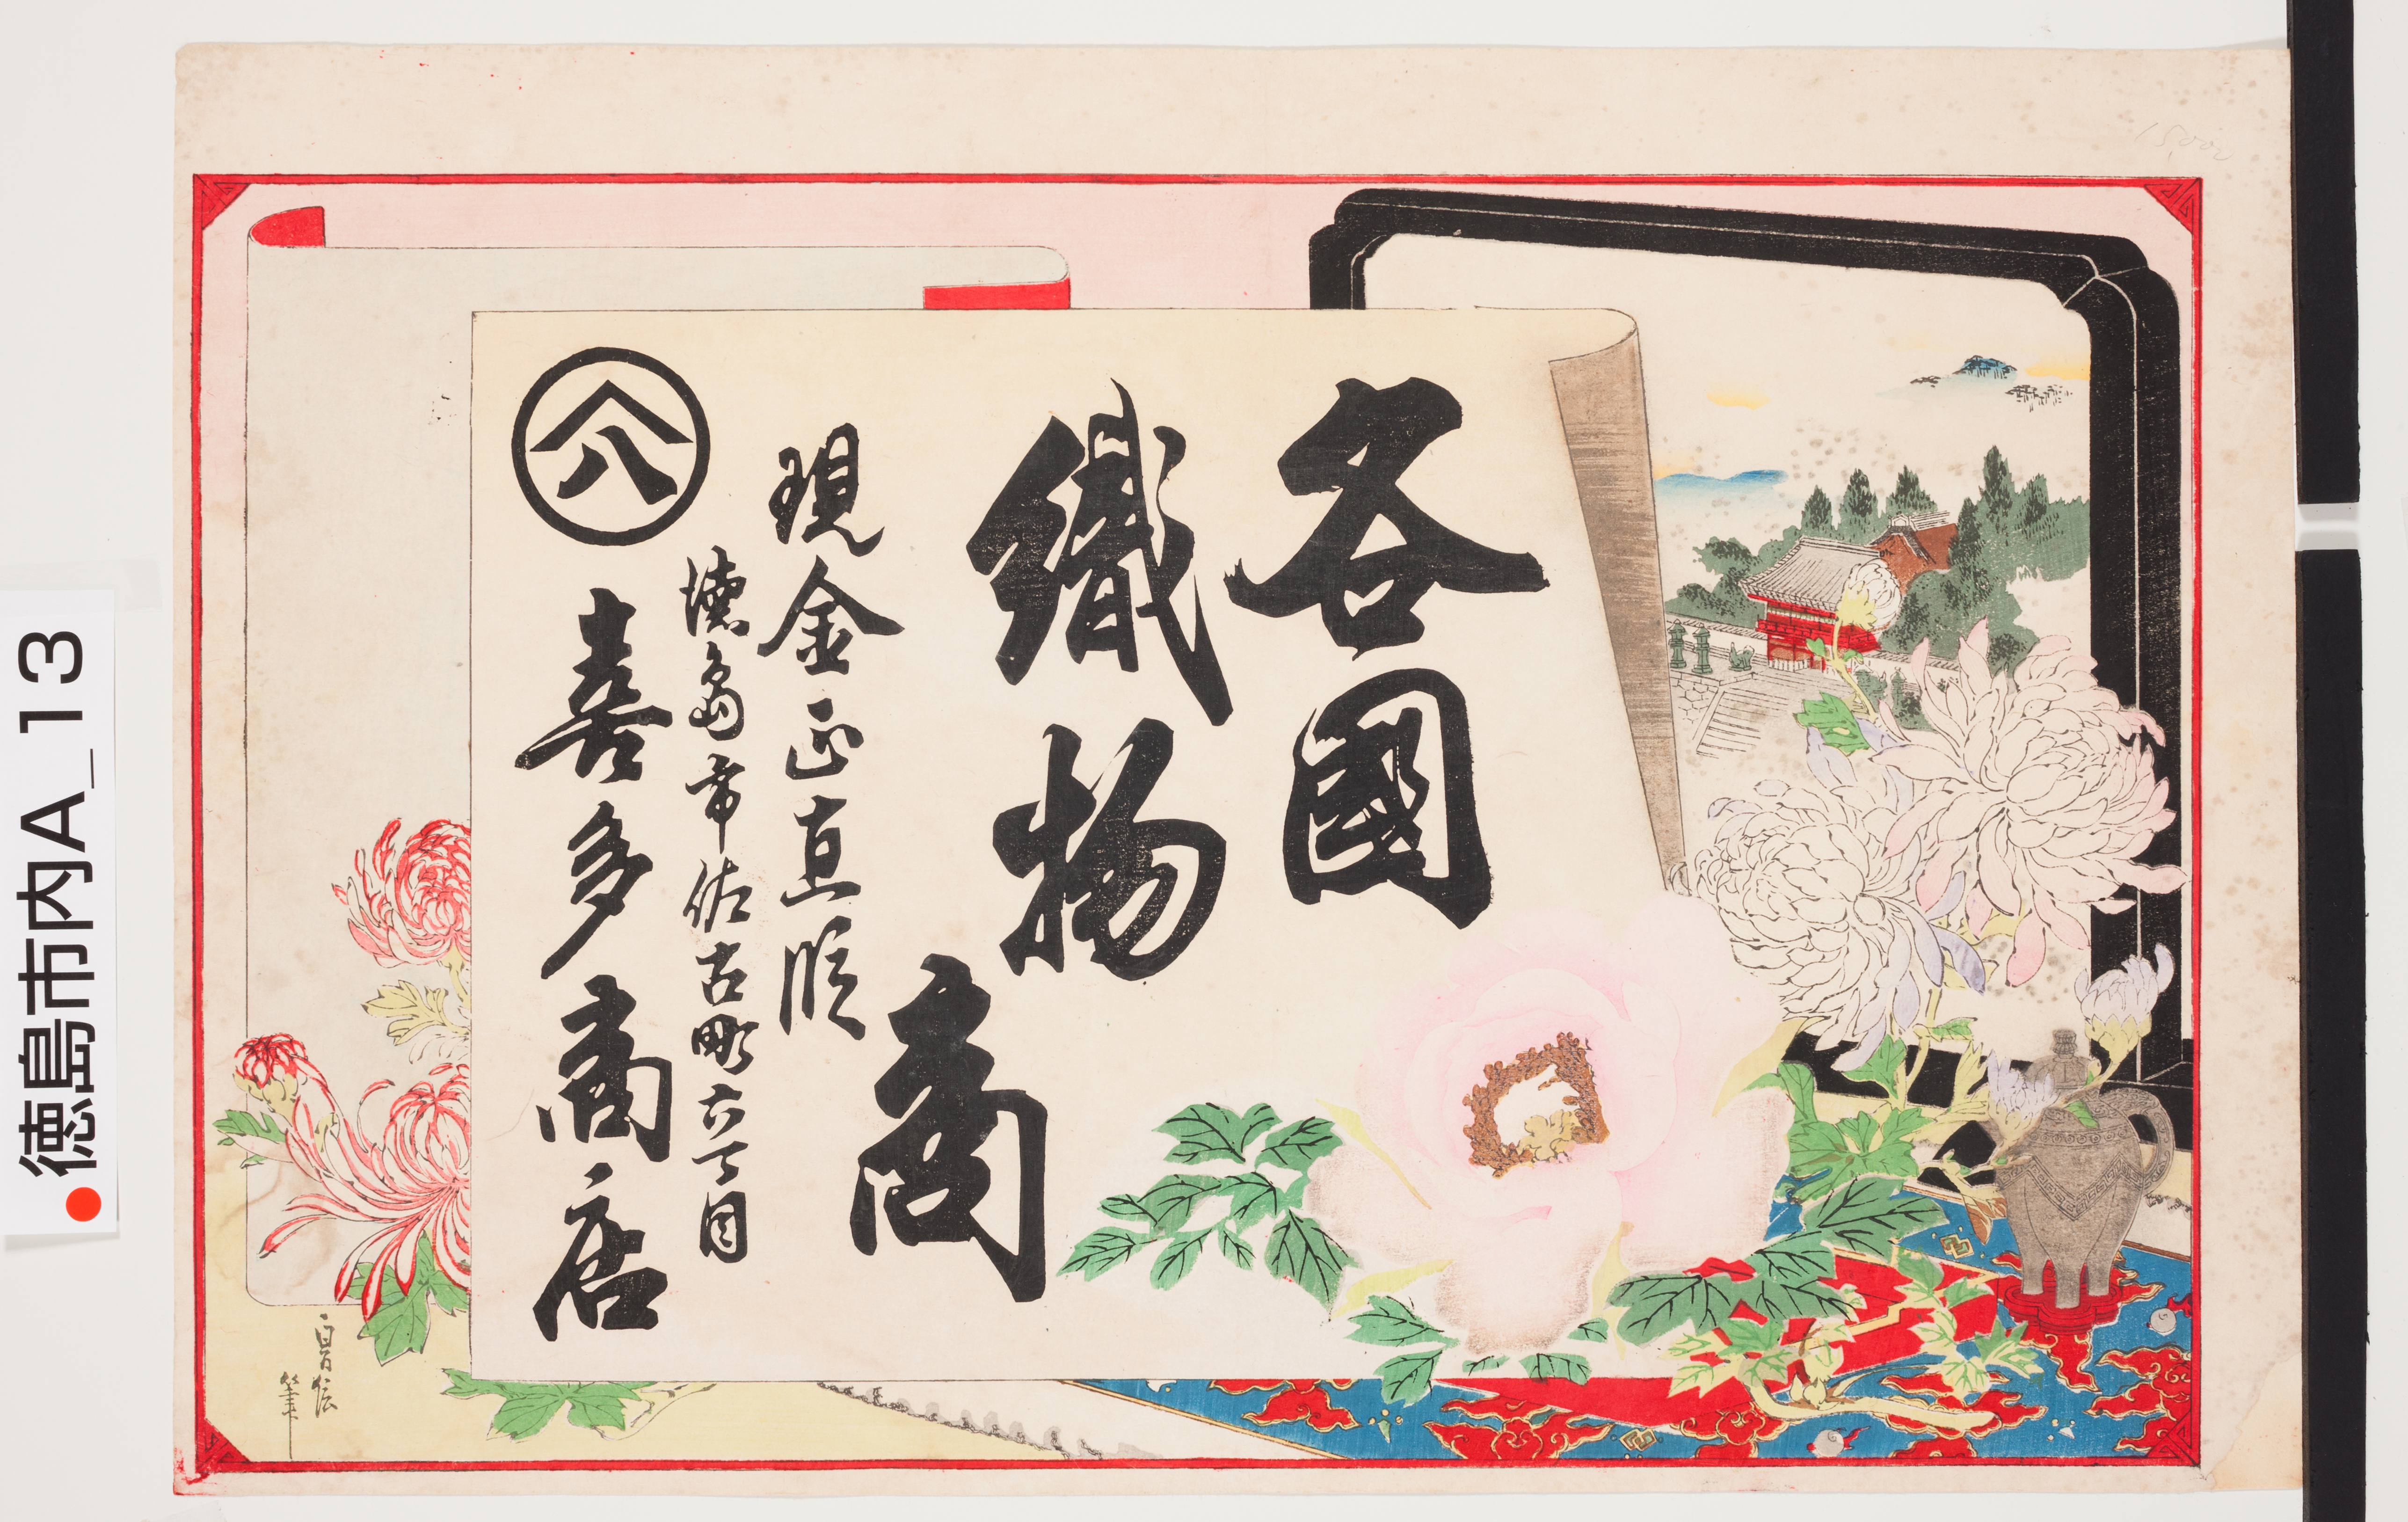 各國
織物
商
現金正直段
徳島市佐古町六丁目
八
喜多商店
貞信
筆
15,000
徳島市内A_13